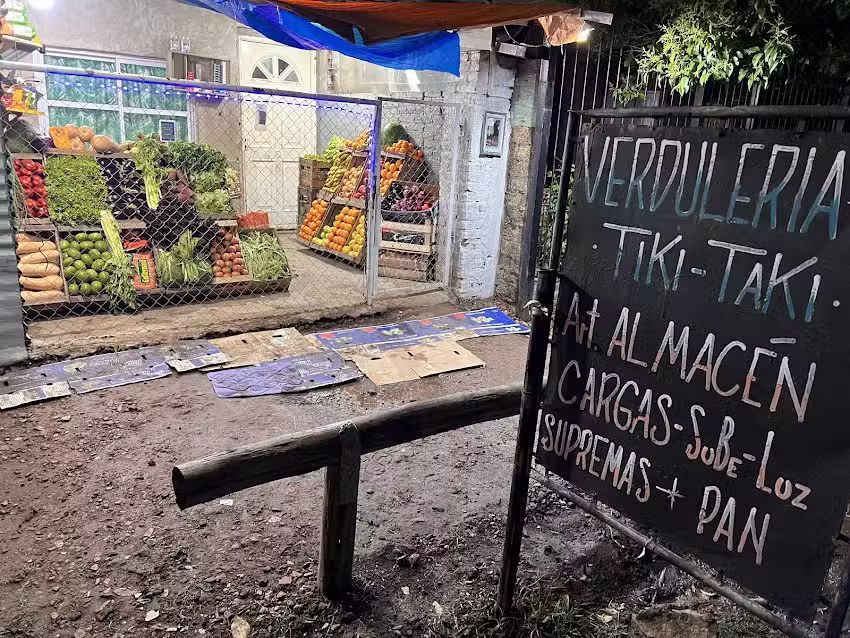 VERDULERIA
· TIKI-TAKI ·
Art. ALMACÉN
CARGAS-SUBE-LUZ
SUPREMAS + PAN